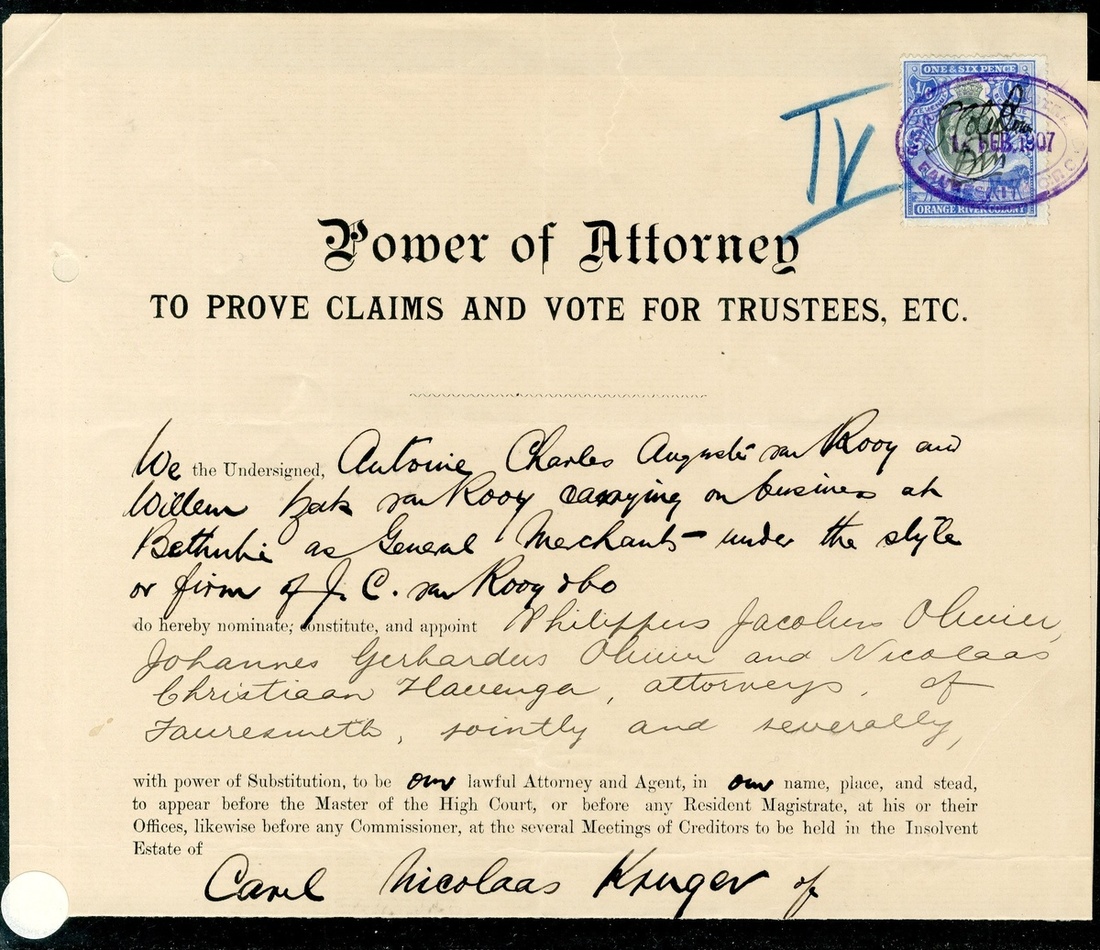 IV
ONE & SIX PENCE
1/6
FEB. 1907
ORANGE RIVER COLONY
Power of Attorney
TO PROVE CLAIMS AND VOTE FOR TRUSTEES, ETC.
We the Undersigned, Antoine Charles Auguste van Rooy and
Willem van Rooy carrying on business at
Bethulie as General Merchants under the style
or firm of J. C. van Rooy & Co
do hereby nominate, constitute, and appoint Philippus Jacobus Olivier,
Johannes Gerhardus Olivier and Nicolaas
Christiaan Havenga, attorneys, of
Fauresmith, jointly and severally,
with power of Substitution, to be our lawful Attorney and Agent, in our name, place, and stead,
to appear before the Master of the High Court, or before any Resident Magistrate, at his or their
Offices, likewise before any Commissioner, at the several Meetings of Creditors to be held in the Insolvent
Estate of
Carel Nicolaas Kruger of